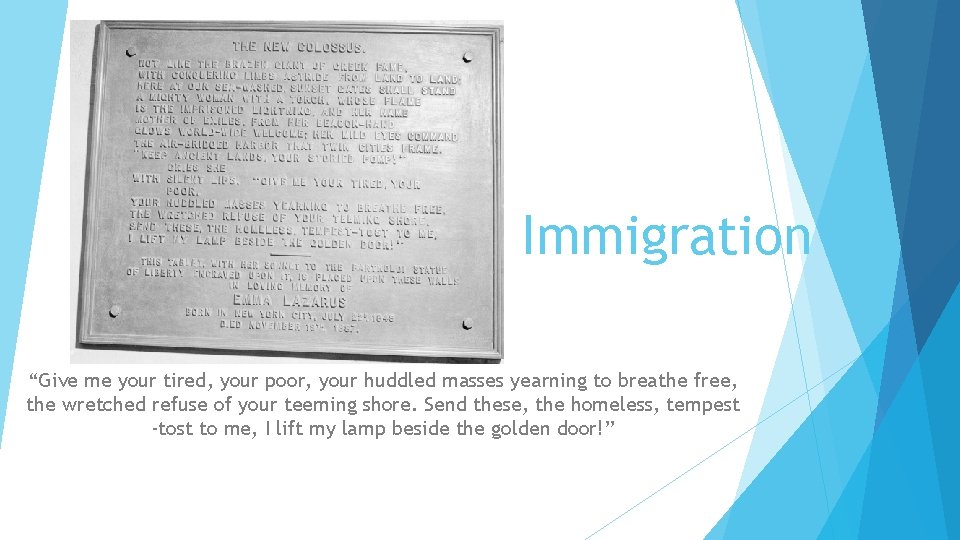 THE NEW COLOSSUS.
NOT LIKE THE BRAZEN GIANT OF GREEK FAME,
WITH CONQUERING LIMBS ASTRIDE FROM LAND TO LAND;
HERE AT OUR SEA-WASHED, SUNSET GATES SHALL STAND
A MIGHTY WOMAN WITH A TORCH, WHOSE FLAME
IS THE IMPRISONED LIGHTNING, AND HER NAME
MOTHER OF EXILES. FROM HER BEACON-HAND
GLOWS WORLD-WIDE WELCOME; HER MILD EYES COMMAND
THE AIR-BRIDGED HARBOR THAT TWIN CITIES FRAME.
"KEEP ANCIENT LANDS, YOUR STORIED POMP!"
CRIES SHE
WITH SILENT LIPS. "GIVE ME YOUR TIRED, YOUR
POOR,
YOUR HUDDLED MASSES YEARNING TO BREATHE FREE,
THE WRETCHED REFUSE OF YOUR TEEMING SHORE.
SEND THESE, THE HOMELESS, TEMPEST-TOST TO ME,
I LIFT MY LAMP BESIDE THE GOLDEN DOOR!"
THIS TABLET, WITH HER SONNET TO THE BARTHOLDI STATUE
OF LIBERTY ENGRAVED UPON IT, IS PLACED UPON THESE WALLS
IN LOVING MEMORY OF
EMMA LAZARUS
BORN IN NEW YORK CITY, JULY
DIED NOVEMBER 19TH, 1887.
Immigration
“Give me your tired, your poor, your huddled masses yearning to breathe free,
the wretched refuse of your teeming shore. Send these, the homeless, tempest
-tost to me, I lift my lamp beside the golden door!”